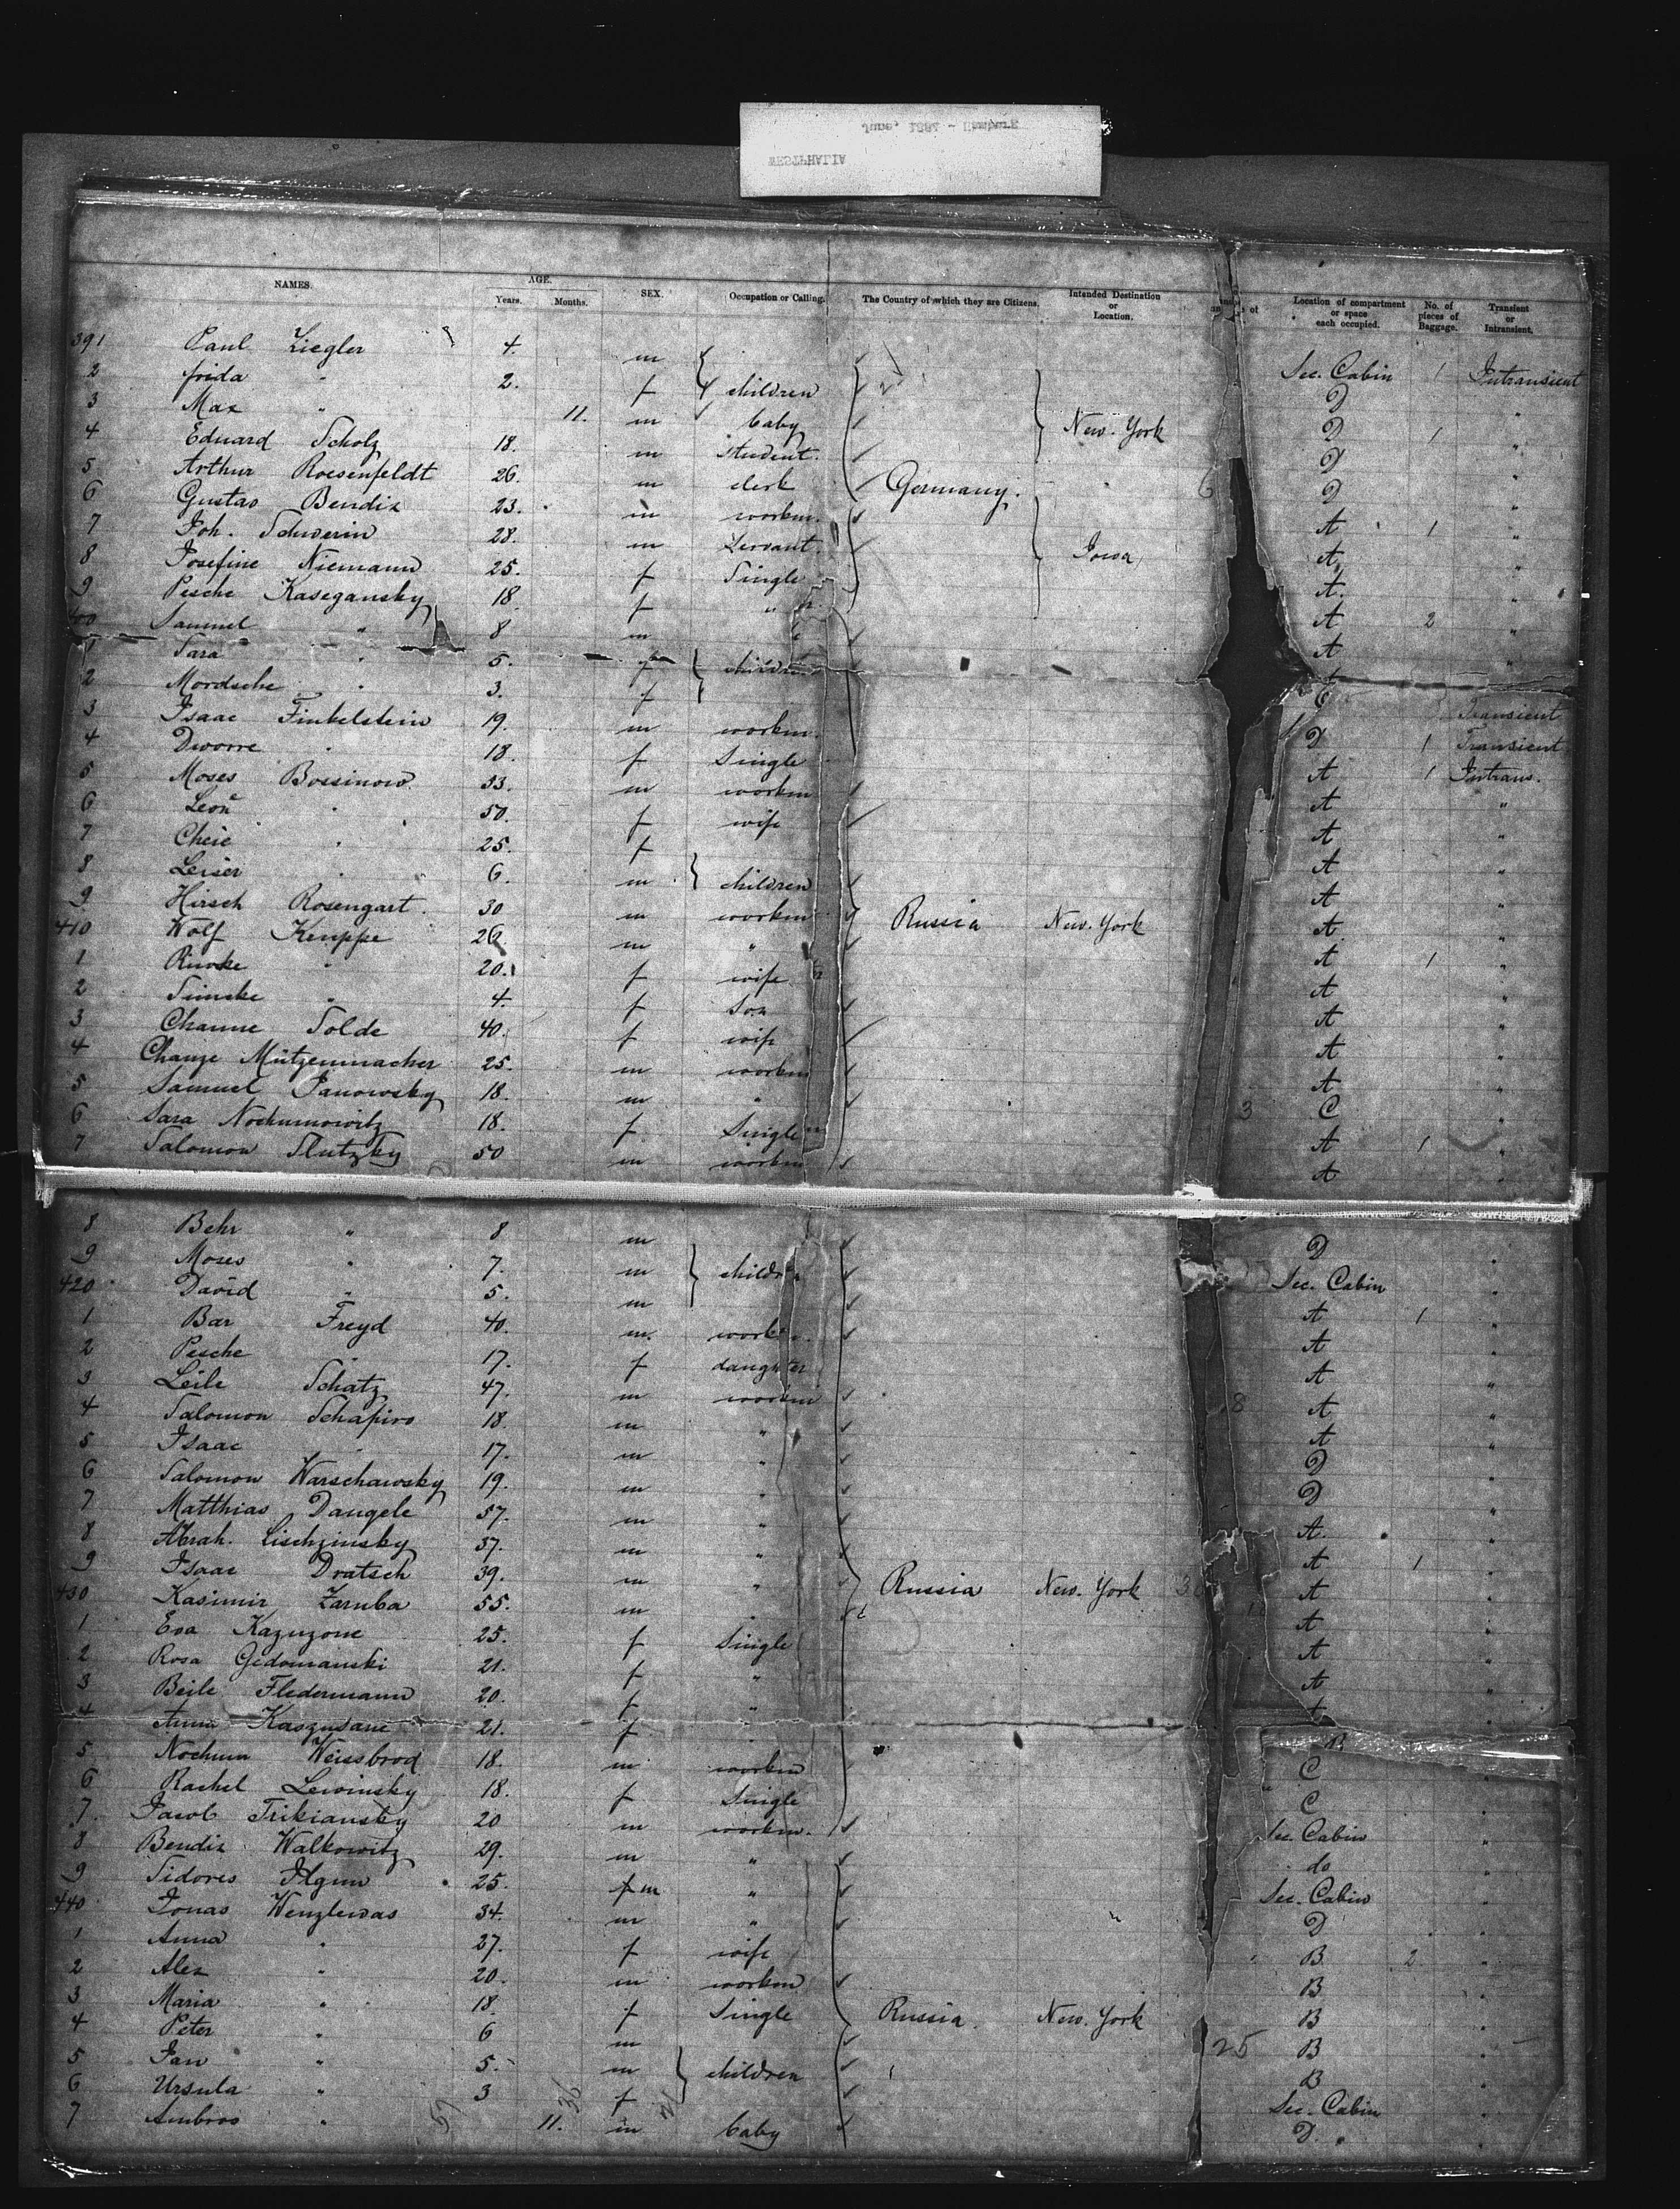 WESTPHALIA
June, 1881 - Hamburg
NAMES. AGE. Years. Months. SEX. Occupation or Calling. The Country of which they are Citizens. Intended Destination or Location. Location of compartment or space each occupied. No. of pieces of Baggage. Transient or Intransient.
391 Paul Ziegler 4. m Sec. Cabin 1 Intransient
2 Frida " 2. f children D
3 Max " 11. m baby New-York D "
4 Eduard Scholz 18. m student. D 1 "
5 Arthur Roesenfeldt 26. m clerk Germany. D "
6 Gustav Bendix 23. m workm. 6 D "
7 Joh. Schwerin 28. m Servant. Iowa A 1 "
8 Josefine Niemann 25. f Single A "
9 Pesche Kasegansky 18. f " A "
400 Samuel " 8 m A 2 "
1 Sara " 5. f children A "
2 Mordsche " 3. f Transient
3 Isaac Finkelstein 19. m workm. D 1 Transient
4 Dworre " 18. f Single A 1 Intrans.
5 Moses Bossinow 33. m workm A "
6 Leon " 50. f wife A "
7 Cheie " 25. f A "
8 Leiser " 6. m children A "
9 Hirsch Rosengart. 30 m workm Russia New-York A "
410 Wolf Kenppe 26. m " A 1 "
1 Riwke " 20. f wife A "
2 Simske " 4. f Son A "
3 Channe Solde 40. f wife A "
4 Chauze Mützenmacher 25. m workm A "
5 Samuel Janowsky 18. m " 3 C "
6 Sara Nochumowitz 18. f Single A 1 "
7 Salomon Slutzky 50 m workm A "
8 Behr " 8 m D "
9 Moses " 7. m children Sec. Cabin "
420 David " 5. m A 1 "
1 Bar Freyd 40. m. workm. A "
2 Pesche " 17. f daughter A "
3 Leile Schatz 47. m workm 8 A "
4 Salomon Schapiro 18. m " A "
5 Isaac " 17. m " D "
6 Salomon Warschawsky 19. m " D "
7 Matthias Dangele 57. m " A. "
8 Abrah. Lischzinsky 37. m " A 1 "
9 Isaac Dratsch 39. m " Russia New-York A "
430 Kasimir Zaruba 55. m " A "
1 Eva Kazuzone 25. f Single A "
2 Rosa Gedomanski 21. f " A "
3 Beile Fledermann 20. f " A "
4 Anna Kaszusane 21. f " B "
5 Nochum Weissbrod 18. m workm C "
6 Rachel Lewinsky 18. f Single C "
7. Jacob Trikiansky 20 m workm. Sec. Cabin "
8 Bendix Walkowitz 29. m " do "
9 Sidores Ilgun 25. f m " Sec. Cabin "
440 Jonas Wenzlewas 34. m " D "
1 Anna " 27. f wife B 2 "
2 Alex " 20. m workm B "
3 Maria " 18. f Single Russia. New-York B "
4 Peter " 6 m 25 B "
5 Jan " 5. m children B "
6 Ursula " 3 f Sec. Cabin "
7 Ambros " 11. m baby D. "